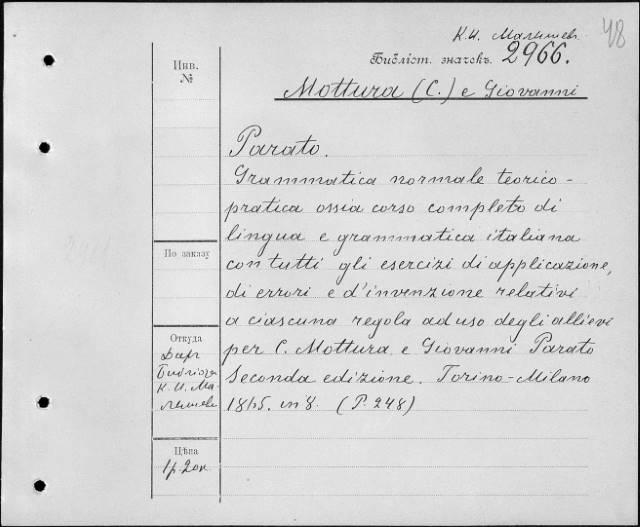 48
К. И. Малышев.
Библіот. значекъ. 2966.
Инв.
№
Mottura (C.) e Giovanni
Parato.
Grammatica normale teorico-
pratica ossia corso completo di
lingua e grammatica italiana
con tutti gli esercizi di applicazione,
di errori e d'invenzione relativi
a ciascuna regola ad uso degli allievi
per C. Mottura e Giovanni Parato
Seconda edizione. Torino-Milano
in 8. (P. 248)
По заказу
Откуда
Даръ
Библіот.
К. И. Ма-
лышева
Цѣна
1р. 20к.